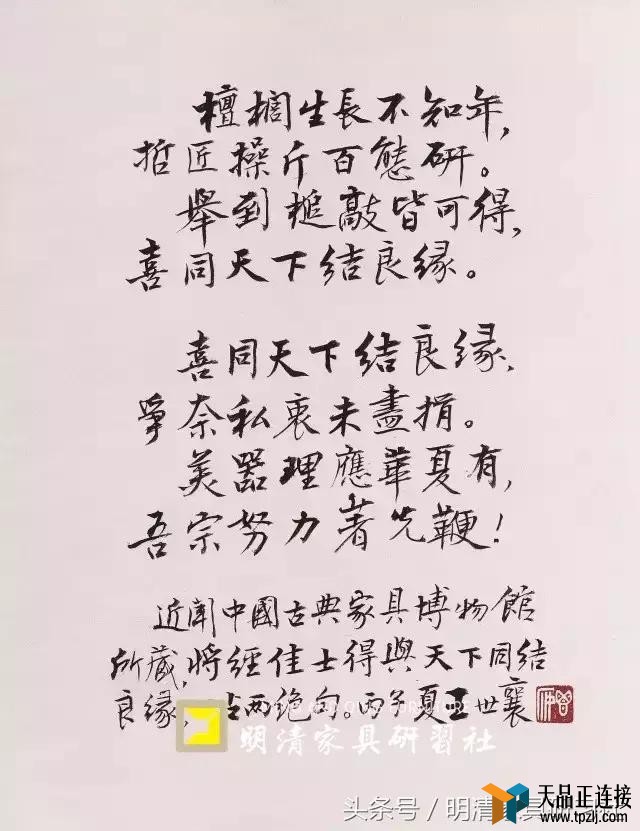 檀櫚生長不知年，
哲匠操斤百態研。
舉到槌敲皆可得，
喜同天下结良缘。
喜同天下结良缘，
爭奈私衷未盡捐。
美器理應華夏有，
吾宗努力著先鞭！
近聞中國古典家具博物館
所藏，將經佳士得與天下同结
良缘，占两绝句。丙子夏王世襄
明清家具研習社
头条号/明清
天品正连接
www.tpzlj.com